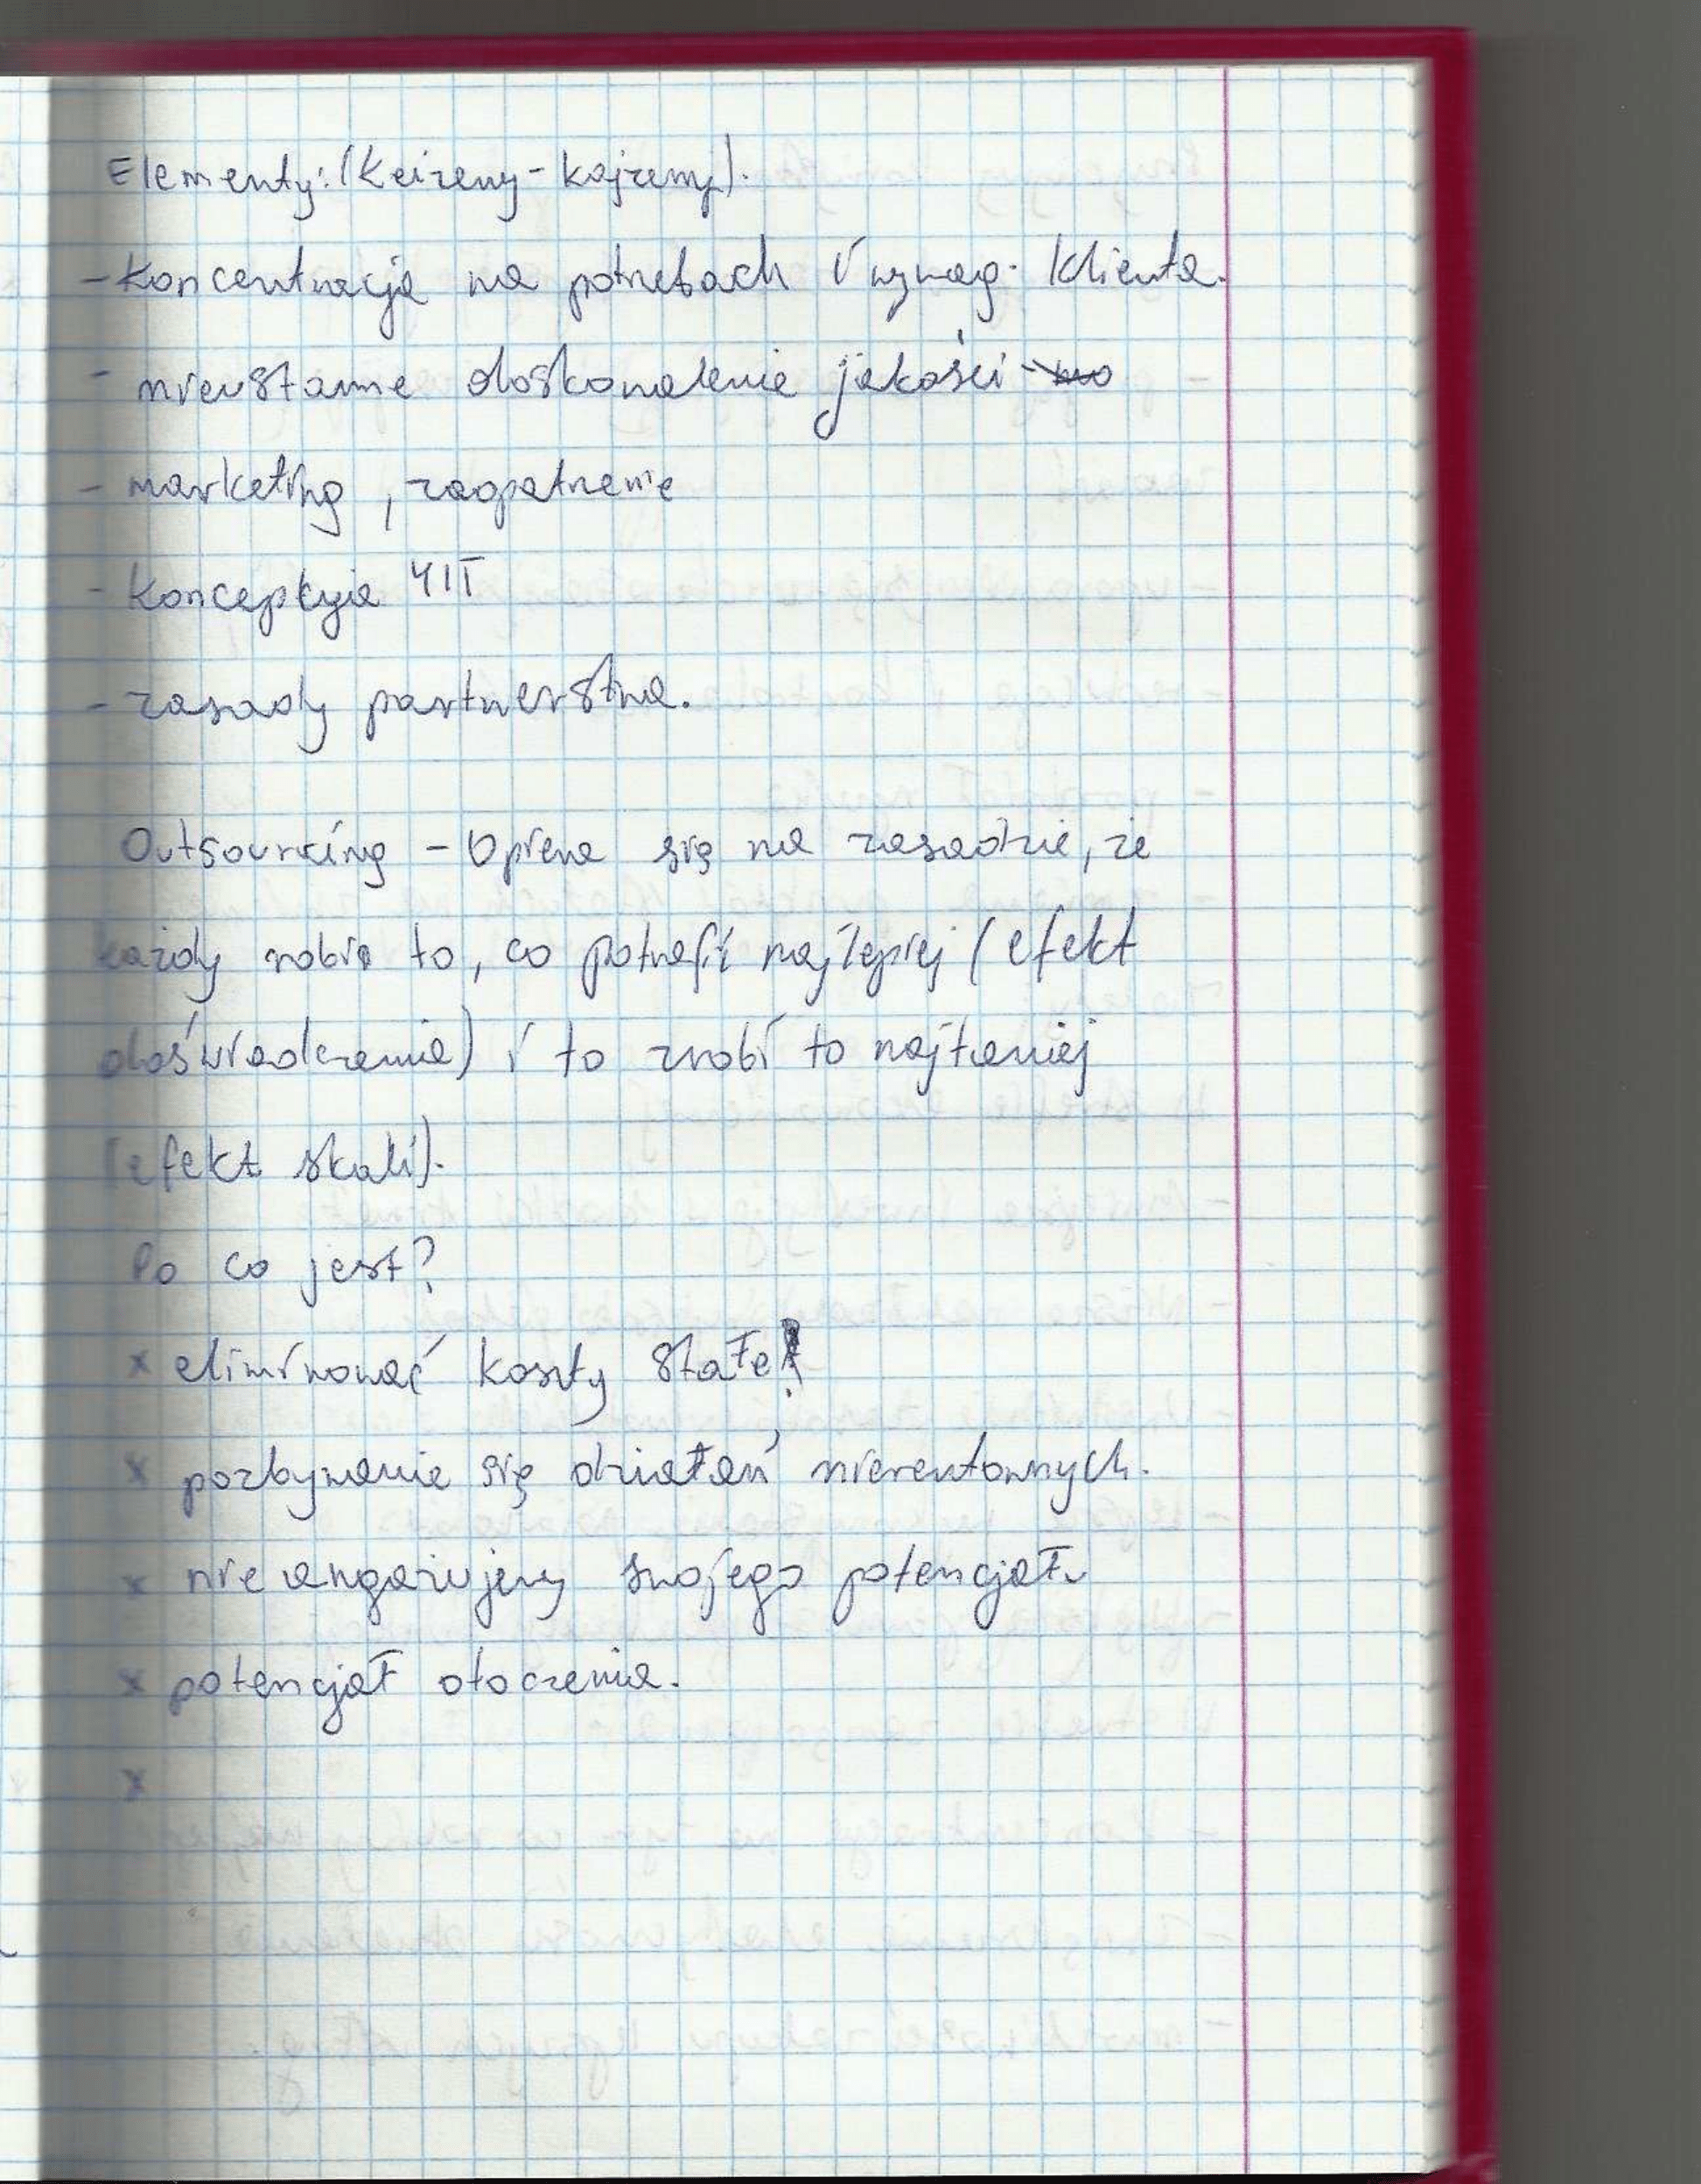 Elementy: (Keizeny - kajzemy).
- Koncentracja na potrzebach i wymag. klienta.
- nieustanne doskonalenie jakości
- marketing, zaopatrzenie
- Koncepcja
- zasady partnerstwa.
Outsourcing - Opiera się na zasadzie, że
każdy robi to, co potrafi najlepiej (efekt
doświadczenia) i to zrobi to najtaniej
(efekt skali).
Po co jest?
x eliminować koszty stałe!
x pozbywanie się działań nierentownych.
x nie angażujemy swojego potencjału
x potencjał otoczenia.
x